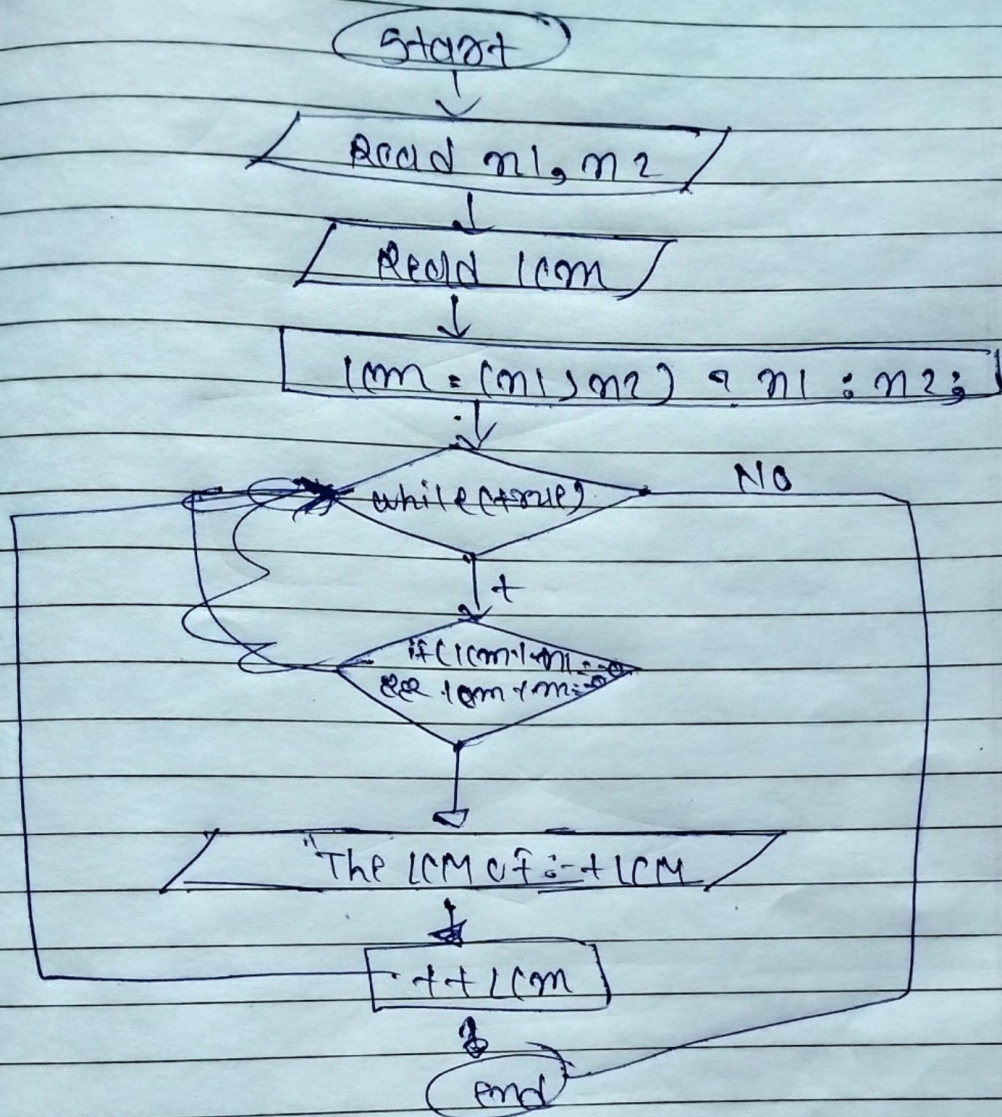 Start
Read n1, n2
Read lcm
lcm = (n1 > n2) ? n1 : n2;
while(true)
No
+
if(lcm % n1 == 0
&& lcm %
"The LCM of :- + LCM
++LCM
end